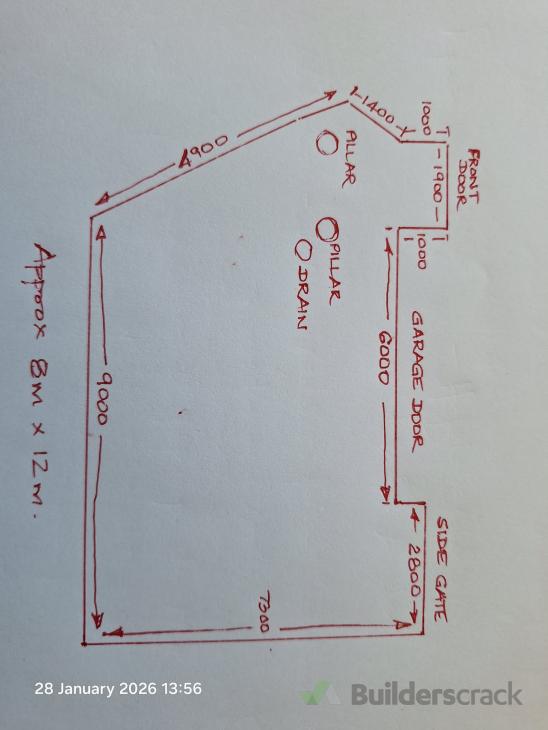 FRONT
DOOR
1000
1900
1400
1000
PILLAR
4900
PILLAR
DRAIN
GARAGE DOOR
6000
SIDE GATE
2800
9000
7300
Approx 8m x 12m.
28 January 2026 13:56
Builderscrack